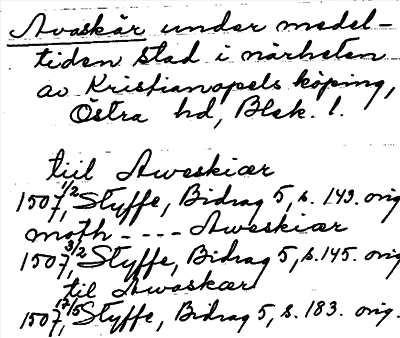 Avaskär under medel-
tiden stad i närheten
av Kristianopels köping,
Östra hd, Blek. l.
till Aweskiær
1507 1/2, Styffe, Bidrag 5, s. 143. orig
moth - - - - Aweskiær
1507 3/2, Styffe, Bidrag 5, s. 145. orig
til Awaskær
1507 17/5, Styffe, Bidrag 5, s. 183. orig.